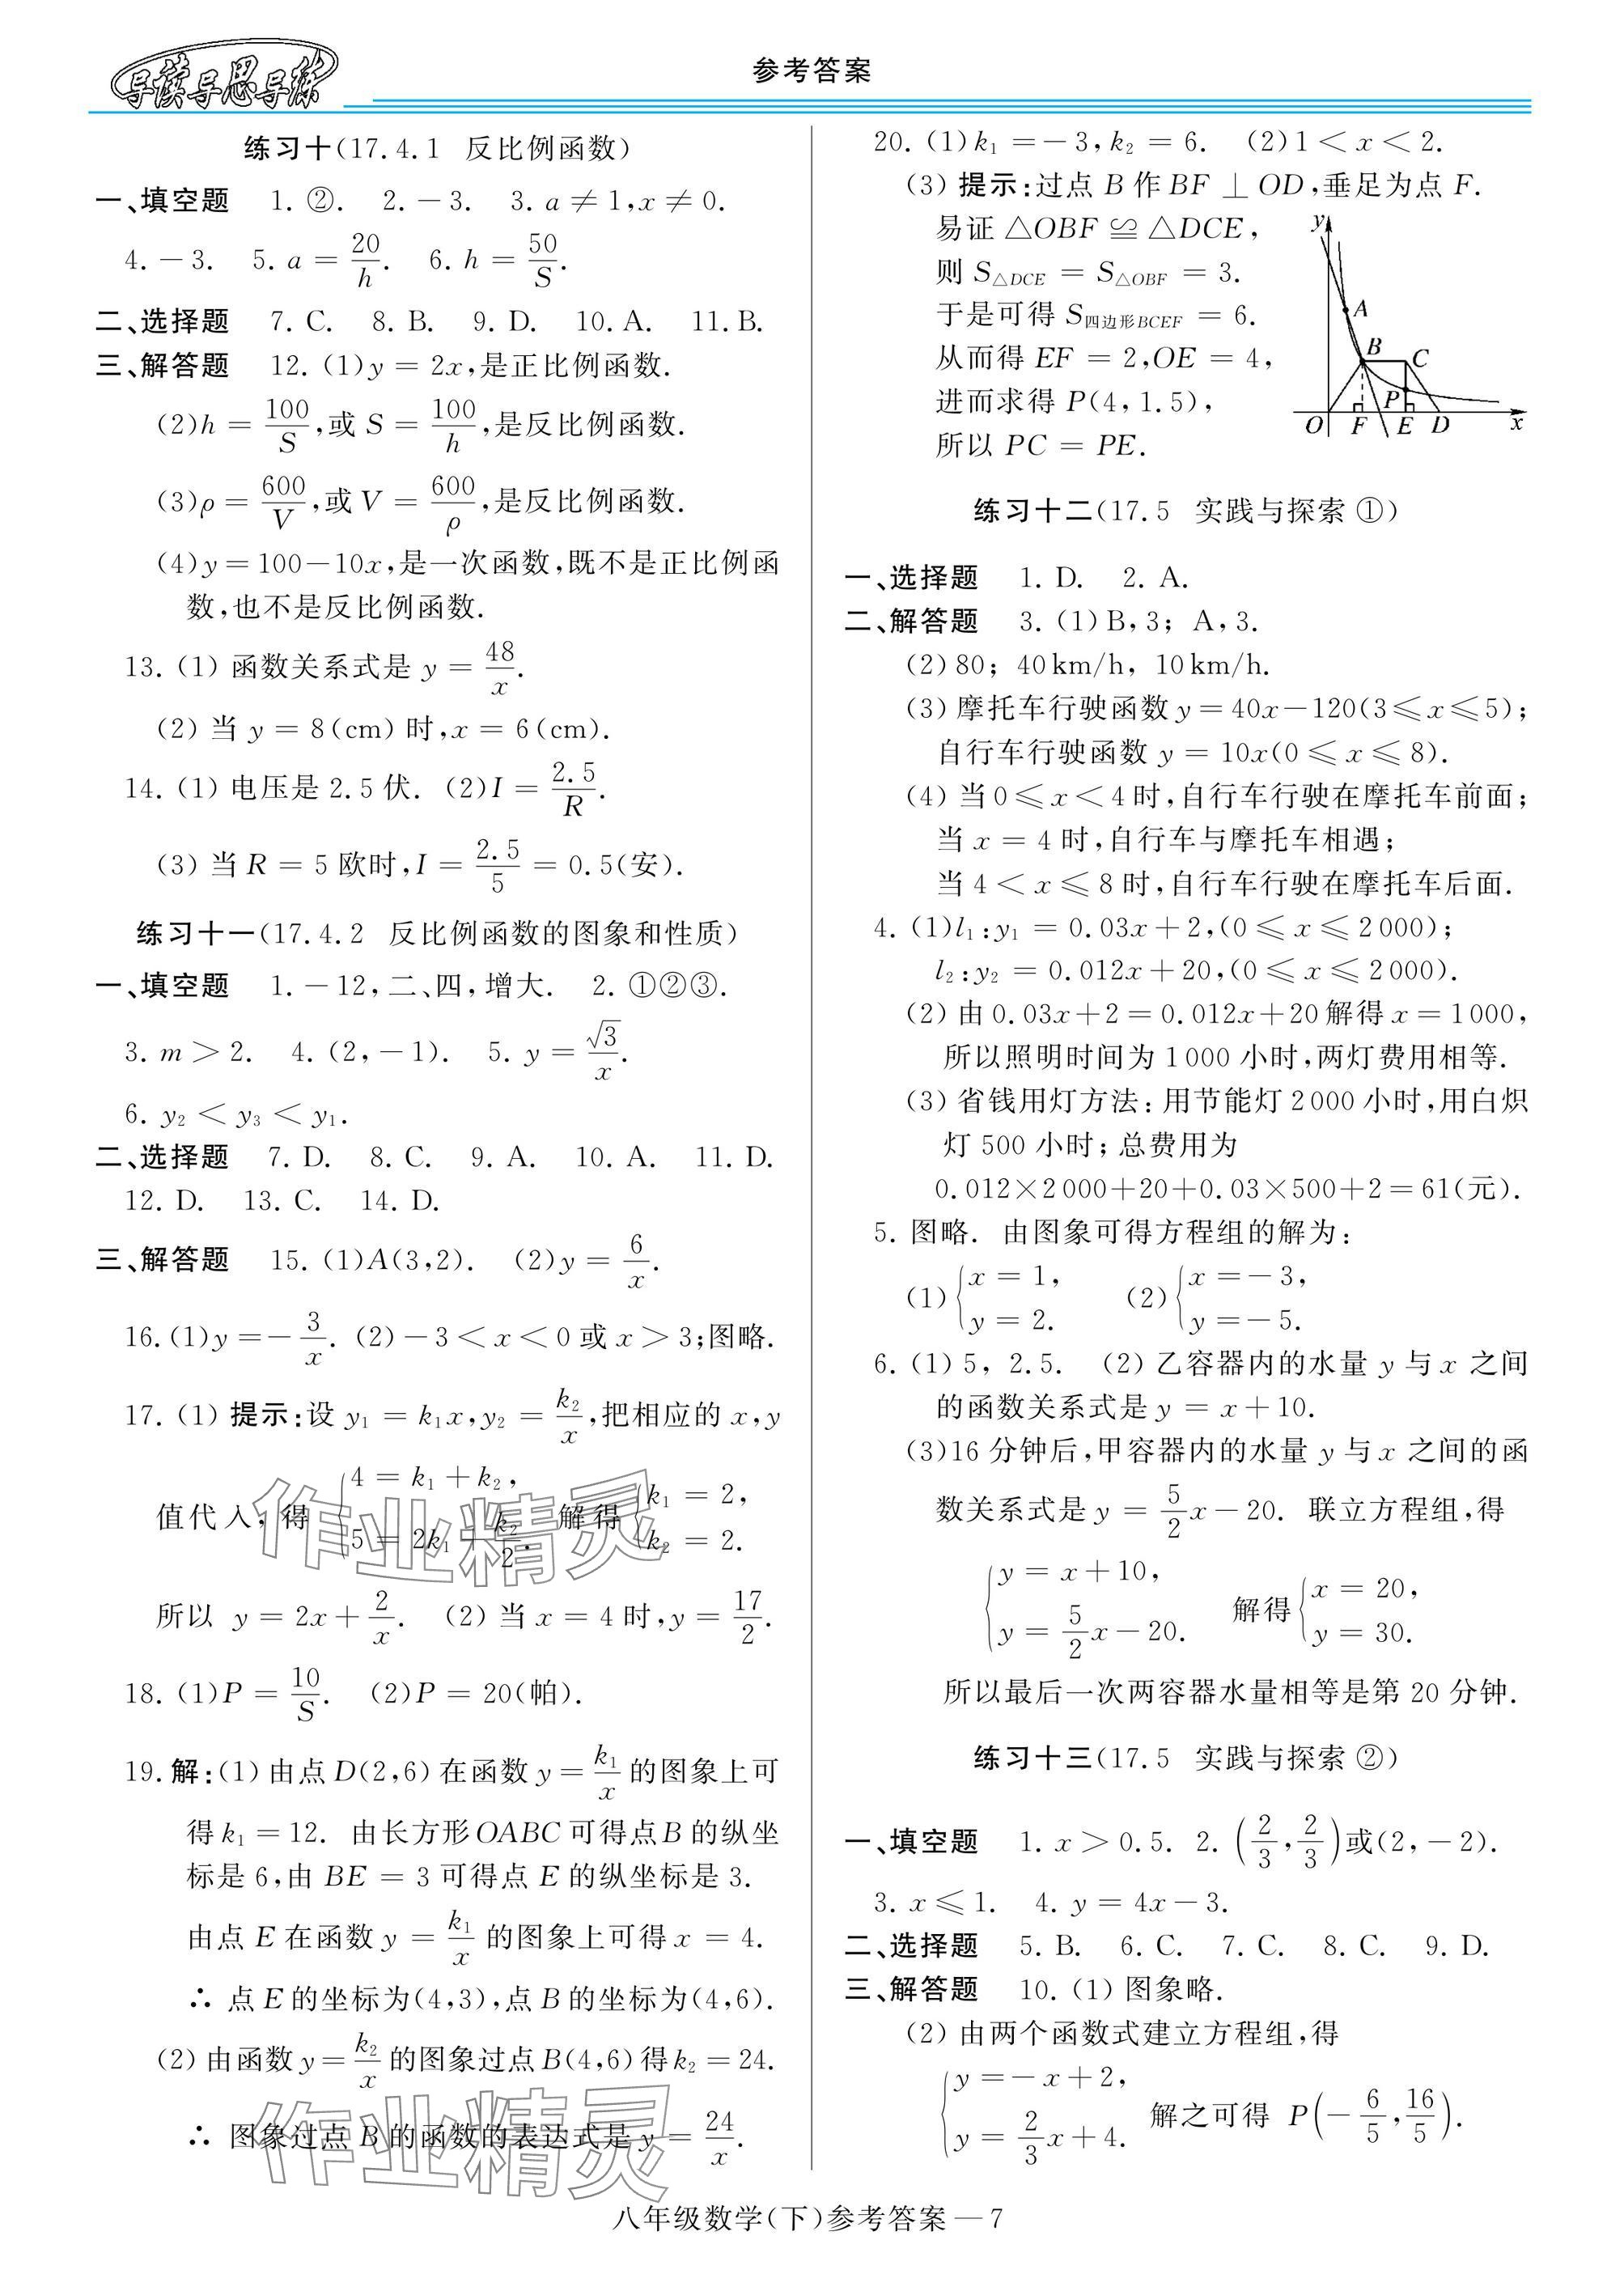 导读导思导练
参考答案
练习十(17.4.1 反比例函数)
一、填空题 1. ②. 2. －3. 3. a ≠ 1,x ≠ 0.
4. －3. 5. a = 20/h. 6. h = 50/S.
二、选择题 7. C. 8. B. 9. D. 10. A. 11. B.
三、解答题 12. (1)y = 2x,是正比例函数.
(2)h = 100/S,或 S = 100/h,是反比例函数.
(3)ρ = 600/V,或 V = 600/ρ,是反比例函数.
(4)y = 100－10x,是一次函数,既不是正比例函
数,也不是反比例函数.
13. (1) 函数关系式是 y = 48/x.
(2) 当 y = 8(cm) 时,x = 6(cm).
14. (1) 电压是 2.5 伏. (2)I = 2.5/R.
(3) 当 R = 5 欧时,I = 2.5/5 = 0.5(安).
练习十一(17.4.2 反比例函数的图象和性质)
一、填空题 1. －12,二、四,增大. 2. ①②③.
3. m > 2. 4. (2,－1). 5. y = √3/x.
6. y₂ < y₃ < y₁.
二、选择题 7. D. 8. C. 9. A. 10. A. 11. D.
12. D. 13. C. 14. D.
三、解答题 15. (1)A(3,2). (2)y = 6/x.
16. (1)y =－3/x. (2)－3 < x < 0 或 x > 3;图略.
17. (1) 提示:设 y₁ = k₁x,y₂ = k₂/x,把相应的 x,y
值代入,得 {4 = k₁＋k₂, 5 = 2k₁＋k₂/2. 解得 {k₁ = 2, k₂ = 2.
所以 y = 2x＋2/x. (2) 当 x = 4 时,y = 17/2.
18. (1)P = 10/S. (2)P = 20(帕).
19. 解:(1) 由点 D(2,6) 在函数 y = k₁/x 的图象上可
得 k₁ = 12. 由长方形 OABC 可得点 B 的纵坐
标是 6,由 BE = 3 可得点 E 的纵坐标是 3.
由点 E 在函数 y = k₁/x 的图象上可得 x = 4.
∴ 点 E 的坐标为(4,3),点 B 的坐标为(4,6).
(2) 由函数 y = k₂/x 的图象过点 B(4,6) 得 k₂ = 24.
∴ 图象过点 B 的函数的表达式是 y = 24/x.
20. (1)k₁ =－3,k₂ = 6. (2)1 < x < 2.
(3) 提示:过点 B 作 BF ⊥ OD,垂足为点 F.
易证 △OBF ≌ △DCE,
则 S△DCE = S△OBF = 3.
于是可得 S四边形BCEF = 6.
从而得 EF = 2,OE = 4,
进而求得 P(4,1.5),
所以 PC = PE.
y
A
B
C
P
O F E D x
练习十二(17.5 实践与探索 ①)
一、选择题 1. D. 2. A.
二、解答题 3. (1) B,3; A,3.
(2) 80; 40 km/h, 10 km/h.
(3) 摩托车行驶函数 y = 40x－120(3 ≤ x ≤ 5);
自行车行驶函数 y = 10x(0 ≤ x ≤ 8).
(4) 当 0 ≤ x < 4 时,自行车行驶在摩托车前面;
当 x = 4 时,自行车与摩托车相遇;
当 4 < x ≤ 8 时,自行车行驶在摩托车后面.
4. (1)l₁:y₁ = 0.03x＋2,(0 ≤ x ≤ 2 000);
l₂:y₂ = 0.012x＋20,(0 ≤ x ≤ 2 000).
(2) 由 0.03x＋2 = 0.012x＋20 解得 x = 1 000,
所以照明时间为 1 000 小时,两灯费用相等.
(3) 省钱用灯方法:用节能灯 2 000 小时,用白炽
灯 500 小时;总费用为
0.012×2 000＋20＋0.03×500＋2 = 61(元).
5. 图略. 由图象可得方程组的解为:
(1) {x = 1, y = 2. (2) {x =－3, y =－5.
6. (1) 5, 2.5. (2) 乙容器内的水量 y 与 x 之间
的函数关系式是 y = x＋10.
(3)16 分钟后,甲容器内的水量 y 与 x 之间的函
数关系式是 y = 5/2x－20. 联立方程组,得
{y = x＋10, y = 5/2x－20. 解得 {x = 20, y = 30.
所以最后一次两容器水量相等是第 20 分钟.
练习十三(17.5 实践与探索 ②)
一、填空题 1. x > 0.5. 2. (2/3,2/3)或(2,－2).
3. x ≤ 1. 4. y = 4x－3.
二、选择题 5. B. 6. C. 7. C. 8. C. 9. D.
三、解答题 10. (1) 图象略.
(2) 由两个函数式建立方程组,得
{y =－x＋2, y = 2/3x＋4. 解之可得 P(－6/5,16/5).
作业精灵
作业精灵
八年级数学(下)参考答案 — 7